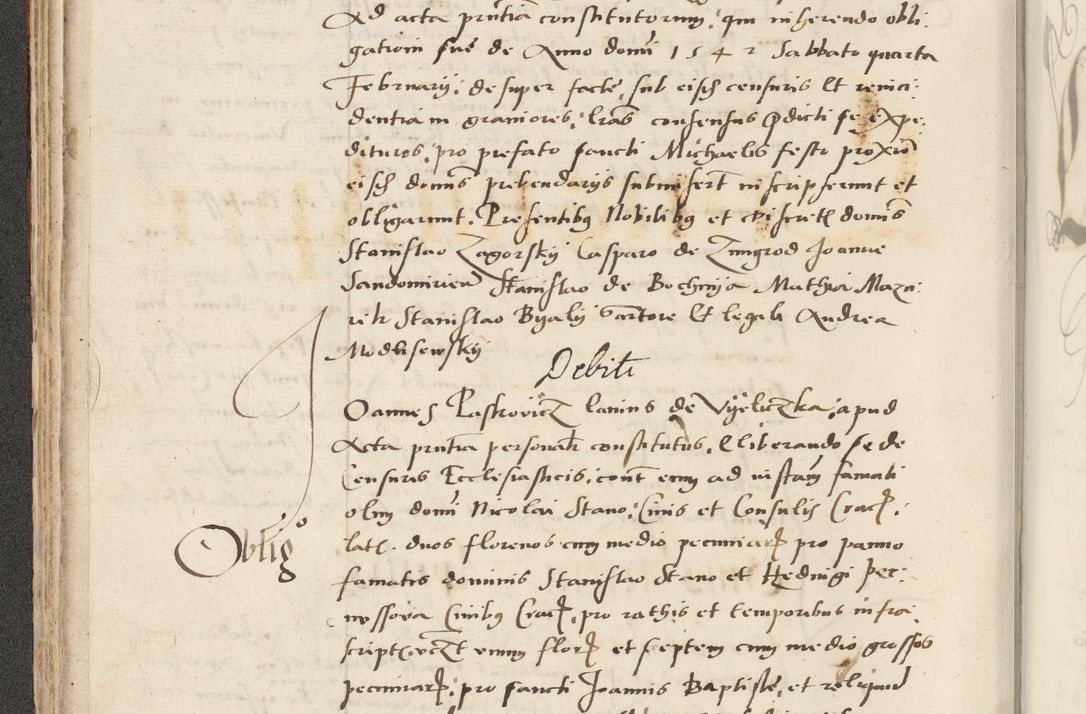 Ad acta pñtia constitutorum, qui inherendo obli:
gationi suę de Anno domi 1542 Sabbato quarta
February, desuper factę, sub eisdẽ censuris Et reinci:
dentia in graniores, lrãs consensus pdicti se expe:
dituros, pro prefato sancti Michaelis festo proximo
eisdẽ dominis prebendarys submiserũt inscripserunt et
obligarunt. Presentibus Nobilibus et discretis dominis
Stanislao Zagorsky Casparo de Zmigrod Joanne
Sandomirien Stanislao de Bochnya Mathia Mazu:
rek Stanislao Byaly Sartore Et legali Andrea
Modlisewsky
Debiti
Joannes Paskovicz lanius de Vyeliczka, apud
Acta pñtia personalr constitutus, Et liberando se de
Censuris Ecclesiasticis, cont eum ad instam famati
olim domi Nicolai Stano, Civis et Consulis Crac.
latis. duos florenos cum medio pecuniar pro panno
Oblig°
famatis dominis Stanislao Stano et Hedvigi Per:
nussova Civibus Crac, pro rathis et temporibus infra
scriptis, vczt unum flor et septem cum medio grossos
pecuniar, pro sancti Joannis Baptistę, et reliquod